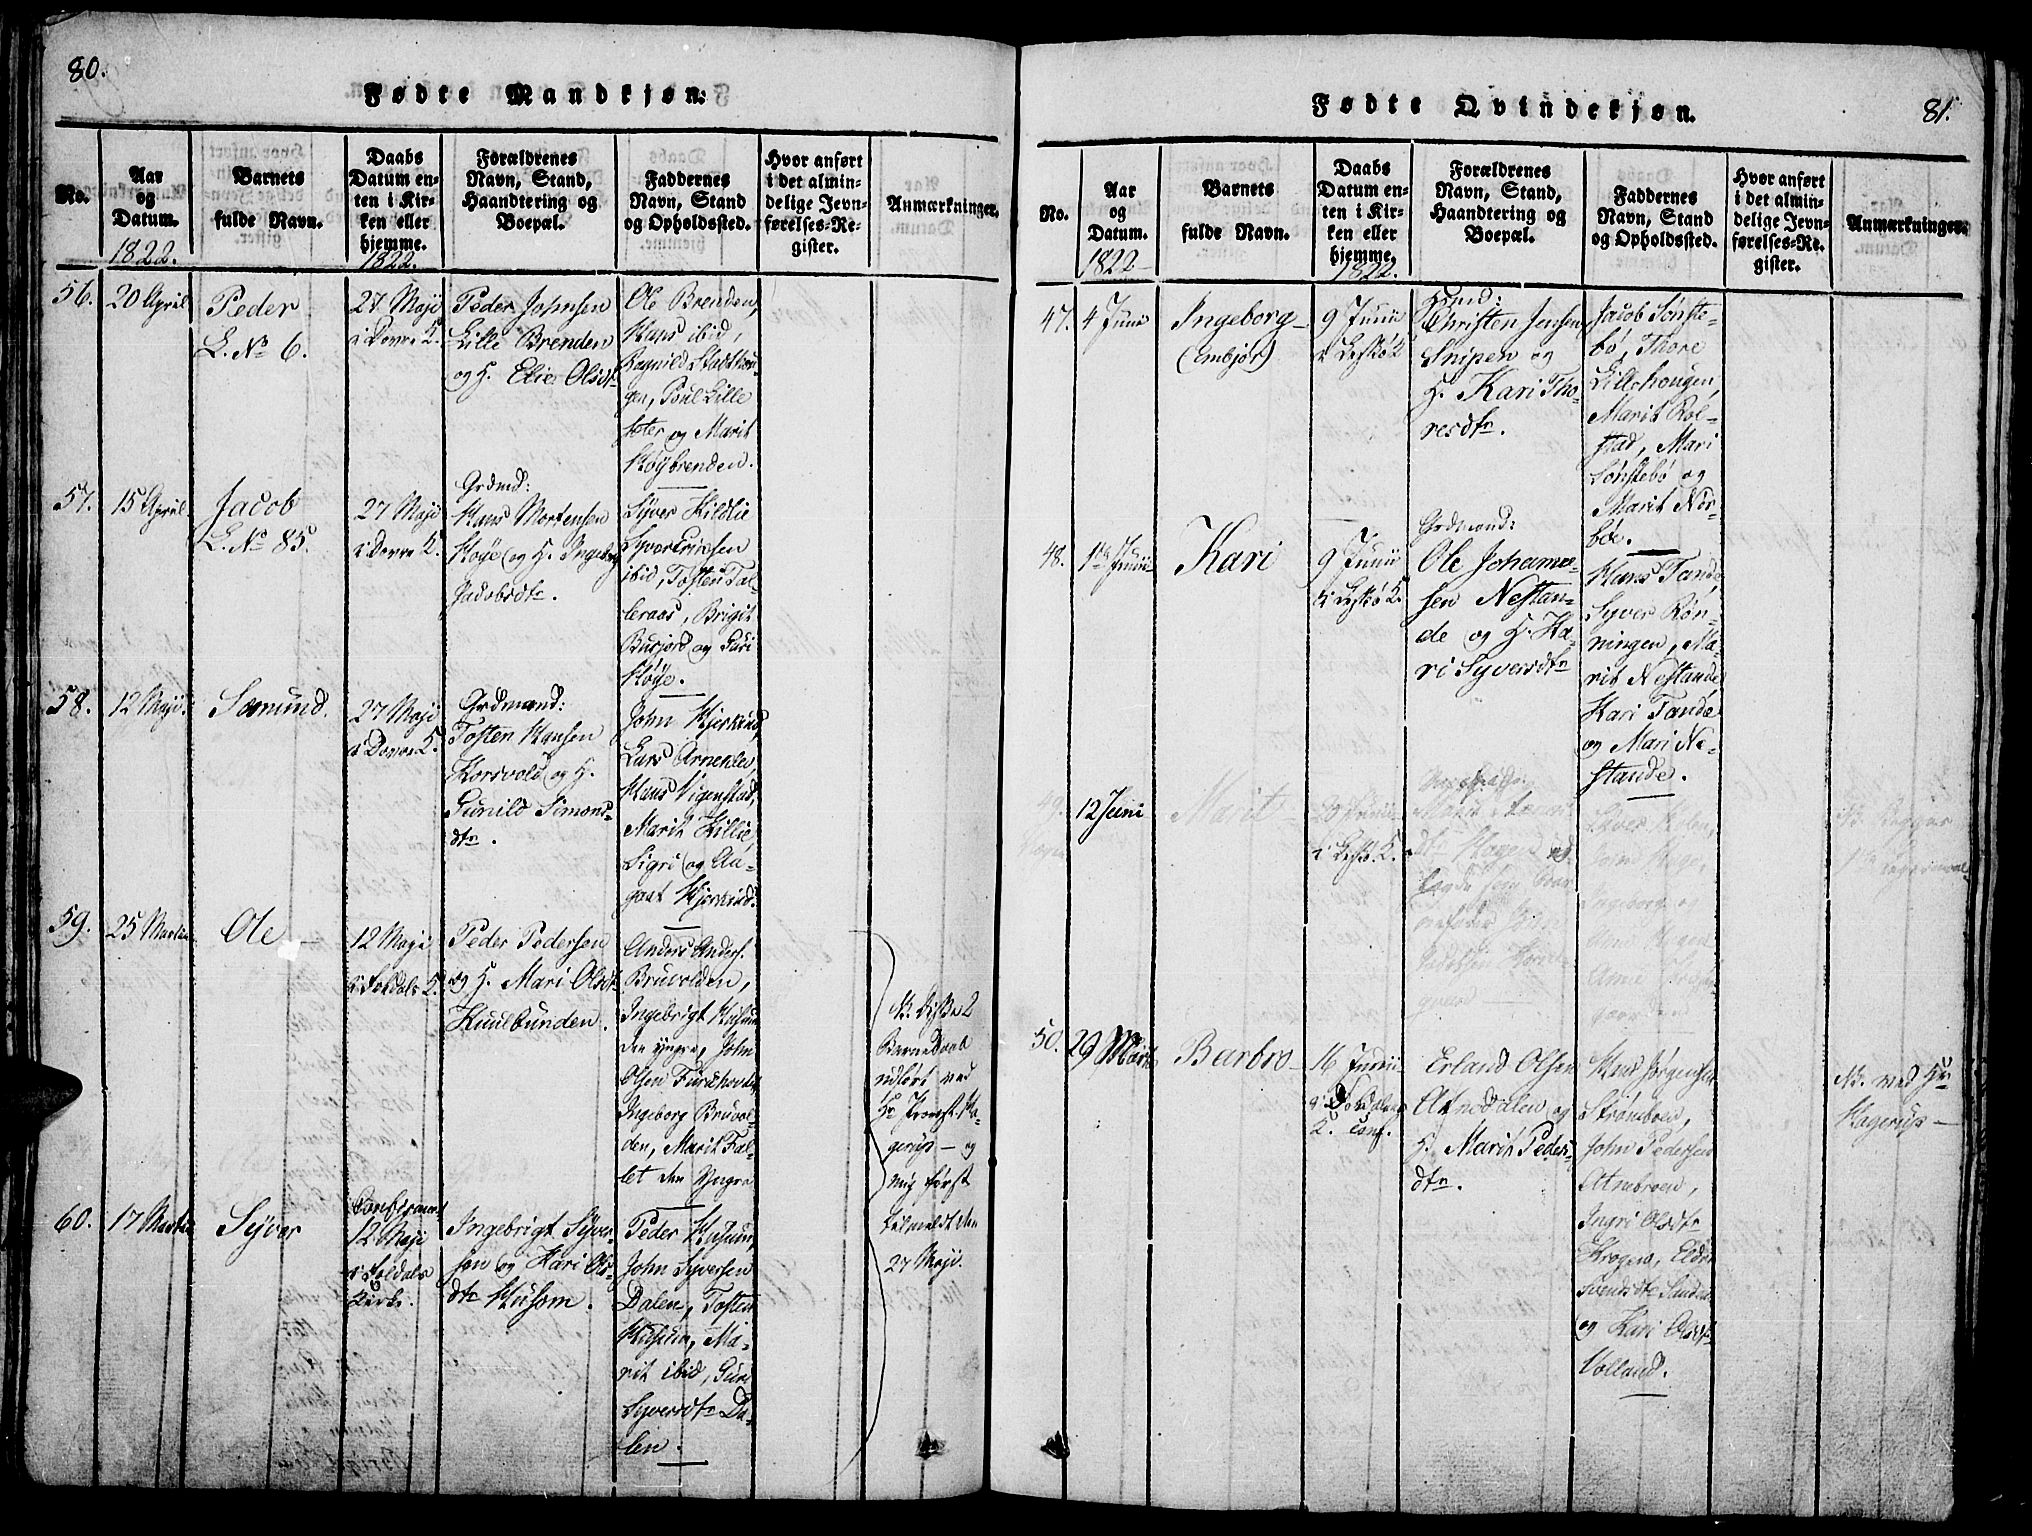 80.
Fødte Mandkjøn:
No.
Aar
og
Datum.
1822.
Barnets
fulde Navn.
Daabs
Datum en-
ten i Kir-
ken eller
hjemme.
1822.
Forældrenes
Navn, Stand,
Haandtering og
Boepæl.
Faddernes
Navn, Stand
og Opholdssted.
Hvor anført
i det almin-
delige Jevn-
førelses-Re-
gister.
Anmærkninger.
56.
20 April
Peder
L. No 6.
27 Maji
i Dovre K.
Peder Johnsen
Lille Brenden
og H. Elie Olsdt
Ole Brenden,
Hans ibid,
Ragnild
gen, Poul Lille
sæter og Marit
Høybrenden.
57.
15 April
Jacob
L. No 85.
27 Maji
i Dovre K.
Grdmd:
Hans Mortensen
Høye og H. Ingeborg
Jacobsdtr.
Syver Kildlie
Syver Ericksen
ibid, Tosten Tal-
leraas, Brigit
Busjord og Guri
Høye.
58.
12 Maji.
Samund.
27 Maji
i Dovre K.
Grdmand:
Tosten Hansen
Korsvold og H.
Gunild Simons-
dtr.
John Hjerkind,
Lars
Hans Vigenstad,
Marit Killie,
Sigri og Aa-
gaat Hjerkind.
59.
25 Martii
Ole
12 Maji
i Foldals K.
Peder Pedersen
og H. Mari Olsdt
Kuulbunden.
Anders Anders.
Bruvolden,
Ingebrigt Husum
den yngre, John
Olsen Furuhovde,
Ingeborg Bruvol-
den, Marit Fal-
let den Yngre
NB. Disse 2
Barnedaab
udført ved
Hr Provst Ha-
gerup — og
mig først
tilmeldt den
27 Maji.
60.
17 Martii
Syver
Confirmeret
12 Maji
i Foldals
Kirke.
Ingebrigt Syver-
sen og Kari Ols-
dtr Husom.
Peder Husum,
John Syversen
Dalen, Tosten
Husum, Ma-
rit ibid, Guri
Syversdtr Da-
len.
81.
Fødte Qvindekjøn.
No.
Aar
og
Datum.
1822
Barnets
fulde Navn.
Daabs
Datum en-
ten i Kir-
ken eller
hjemme.
1822.
Forældrenes
Navn, Stand,
Haandtering og
Boepæl.
Faddernes
Navn, Stand
og Opholdssted.
Hvor anført
i det almin-
delige Jevn-
førelses-Re-
gister.
Anmærkninger.
47.
4 Juni
Ingeborg
(Embjør)
9 Junii
i Leskø K
Christen Jensen
Snipen og
H. Kari Tho-
resdtr.
Jacob Sønste-
bø, Thore
Lillehougen,
Marit Rol-
stad, Mari
Sønstebø og
Marit Nør-
bøe.
48.
Junii
Kari
9 Junii
i Leskø K.
Grdmand:
Ole Johanne-
sen Nestan-
de og H. Ka-
ri Syversdtr
Hans Tande
Syver Røn-
ningen, Ma-
rit Nestande
Kari Tande
og Mari Ne-
stande.
49.
12 Juni
Marit
i Leskø K.
Ingeborg og
50.
29 Martii
Barbro
16 Junii
i Foldalens
K. Conf.
Erland Olsen
Atnedalen og
H. Marit Peders-
dtr.
Hans Jørgensen
Strømboen,
John Pedersen
Atnebroen,
Ingri Olsdtr
Krogen, Eldri
Svensdtr Sanden
og Kari Olsdtr
Volland.
NB. ved Hr
Hagerup —